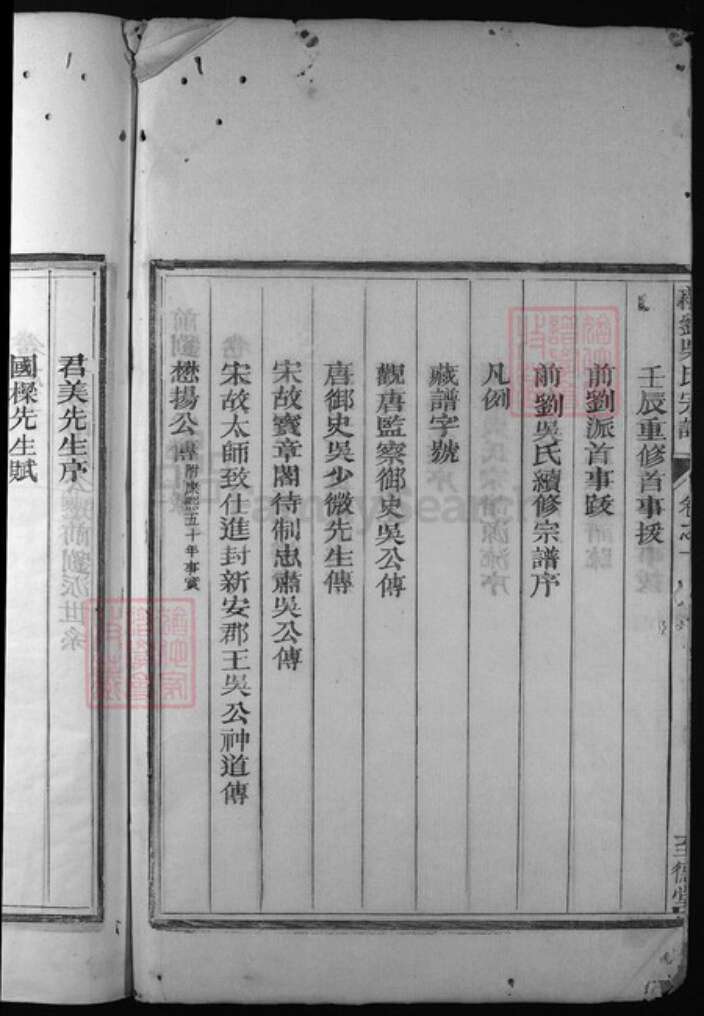 前劉吳氏宗譜
卷之一
至德堂
壬辰重修首事援
前劉派首事跋
前劉吳氏續修宗譜序
凡例
藏譜字號
觀唐監察御史吳公傳
唐御史吳少微先生傳
宋故寶章閣待制忠肅吳公傳
宋故太師致仕進封新安郡王吳公神道傳
懋揚公傳 附康熙五十年事實
君美先生序
國樑先生賦